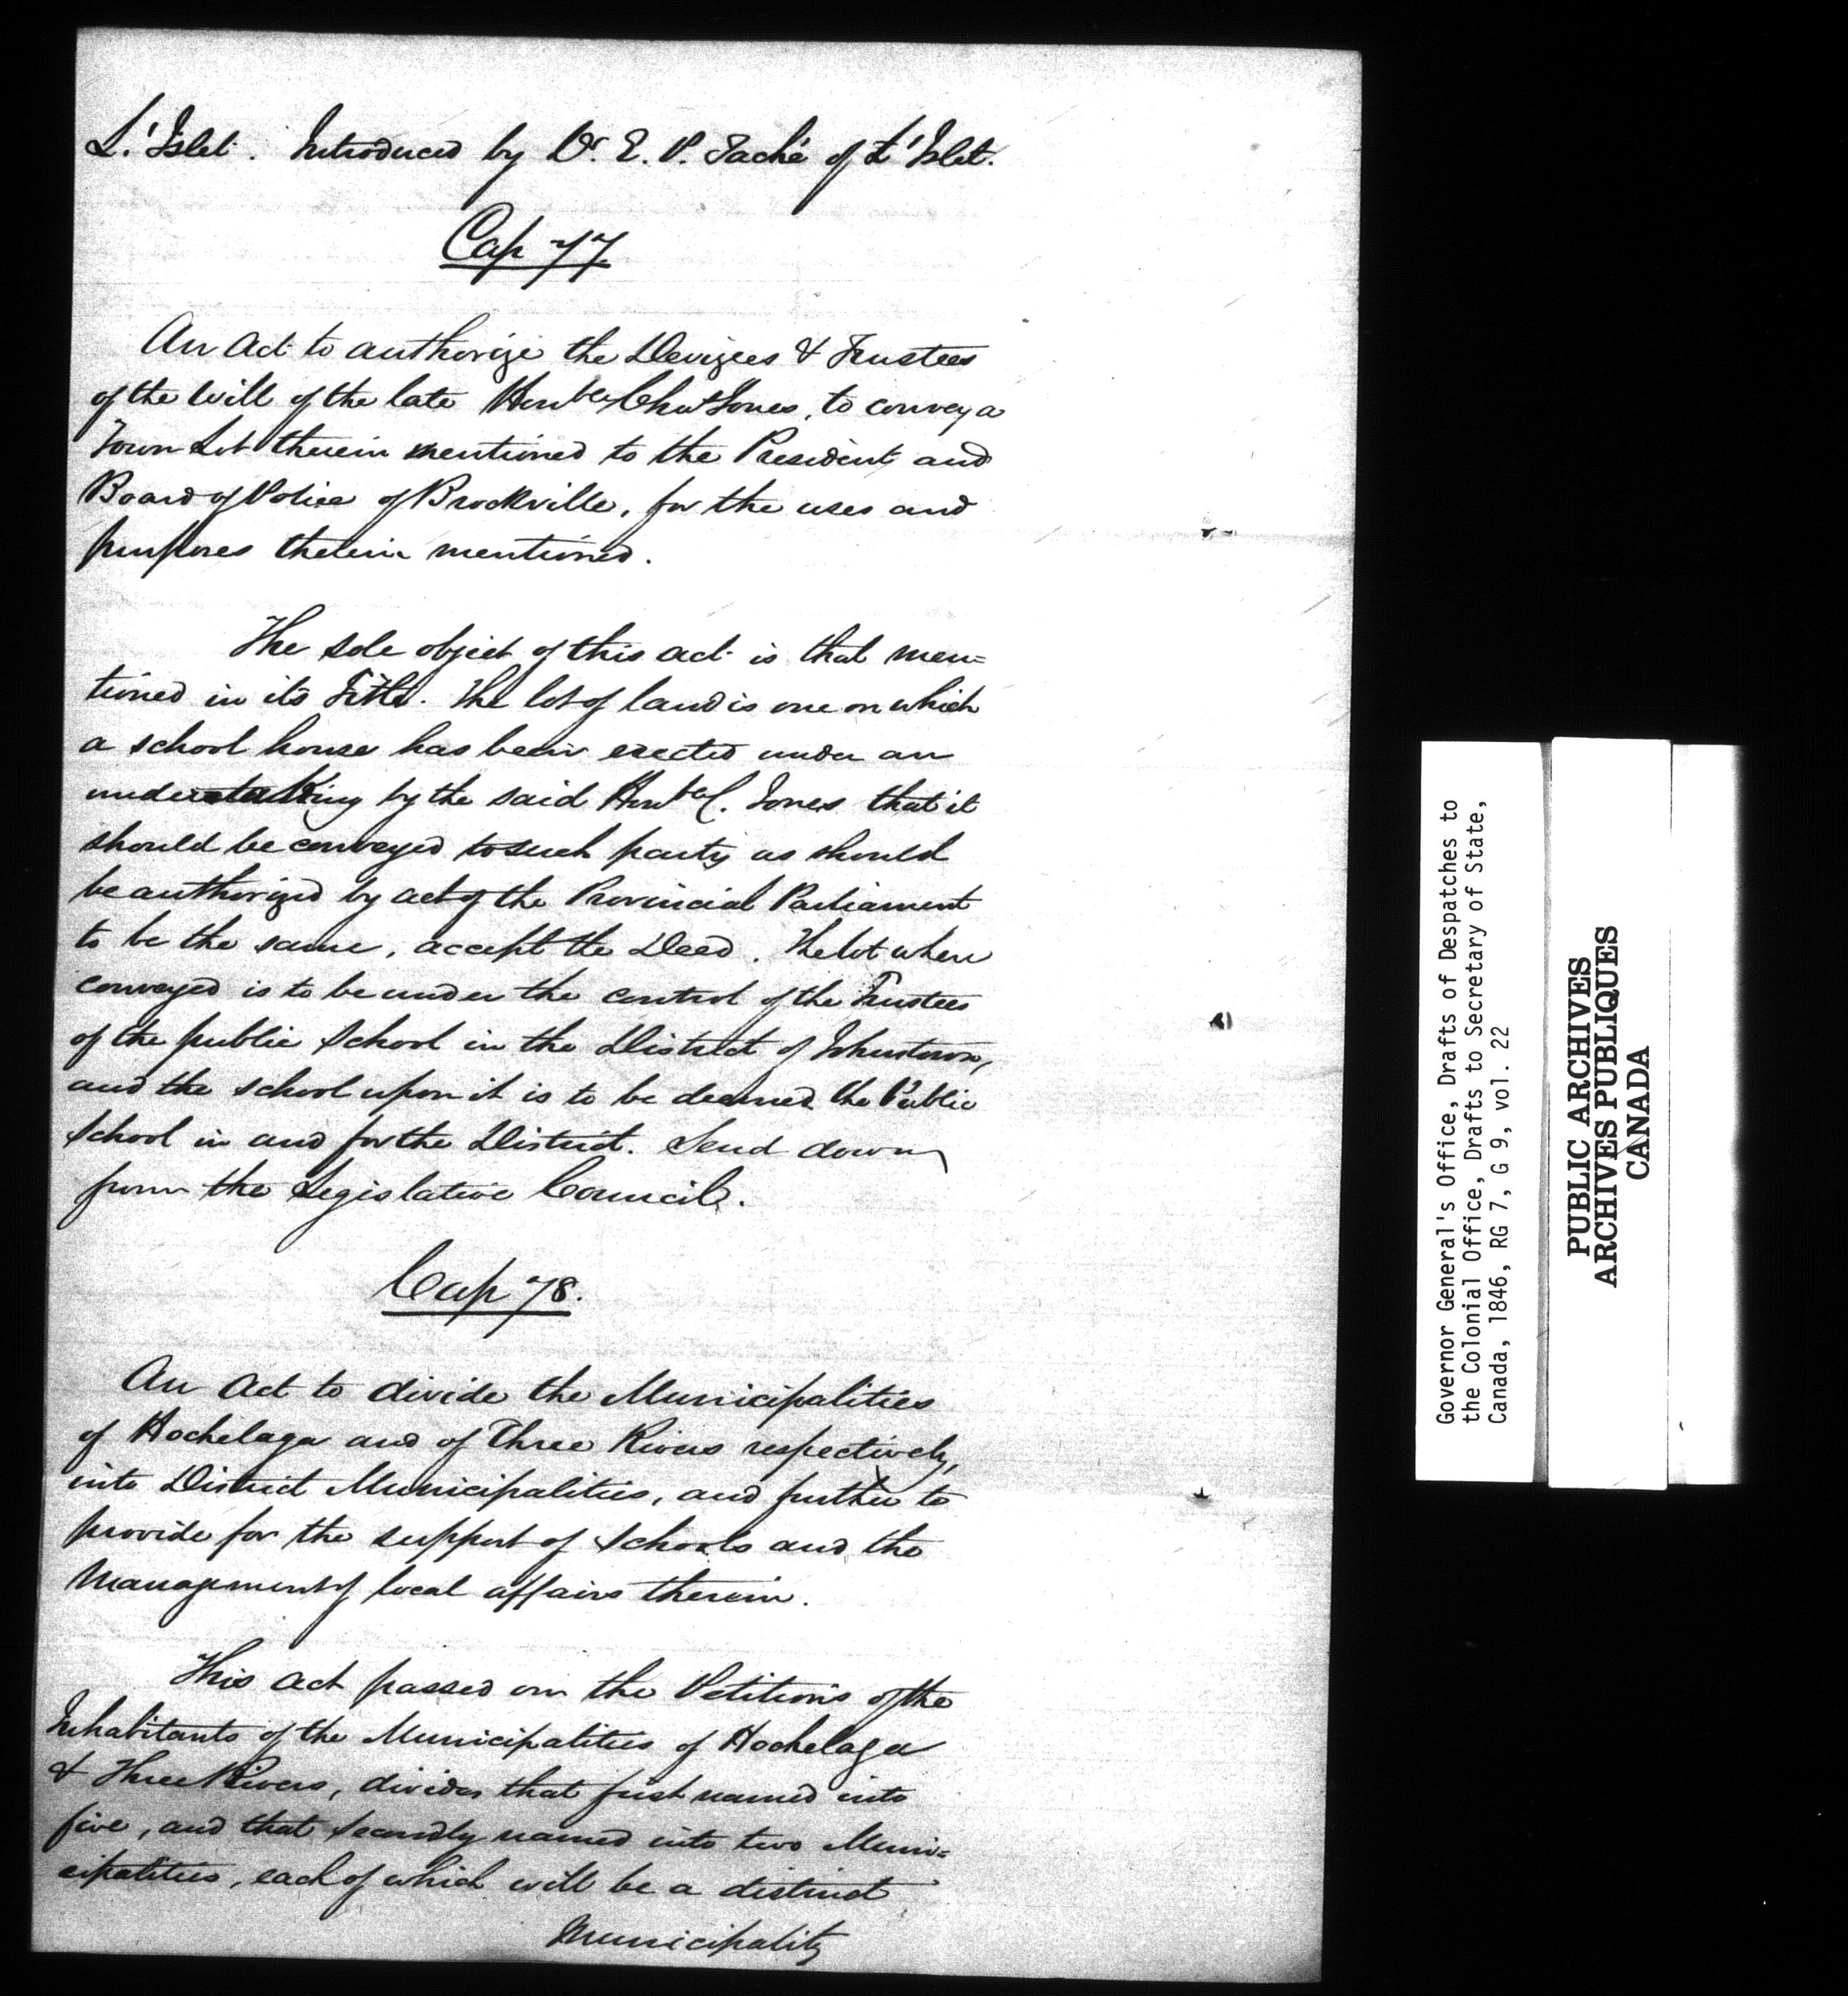 L'Islet. Introduced by Dr. E. P. Taché of L'Islet.
Cap 77
An Act to authorize the Devizees & Trustees
of the Will of the late Honble Chas Jones, to convey a
Town Lot therein mentioned to the President and
Board of Police of Brockville, for the uses and
purposes therein mentioned.
The sole object of this act is that men=
tioned in its Title. The lot of land is one on which
a school house has been erected under an
undertaking by the said Honble C. Jones that it
should be conveyed to such party as should
be authorized by act of the Provincial Parliament
to be the same, accept the Deed. The lot when
conveyed is to be under the control of the Trustees
of the public School in the District of Johnstown,
and the school upon it is to be deemed the Public
School in and for the District. Send down
from the Legislative Council.
Cap 78.
An Act to divide the Municipalities
of Hochelaga and of Three Rivers respectively,
into District Municipalities, and further to
provide for the support of Schools and the
Management of local affairs therein.
This Act passed on the Petitions of the
Inhabitants of the Municipalities of Hochelaga
& Three Rivers, divides that first named into
five, and that secondly named into two Muni=
cipalities, each of which will be a distinct
Municipality
Governor General's Office, Drafts of Despatches to
the Colonial Office, Drafts to Secretary of State,
Canada, 1846, RG 7, G 9, vol. 22
PUBLIC ARCHIVES
ARCHIVES PUBLIQUES
CANADA